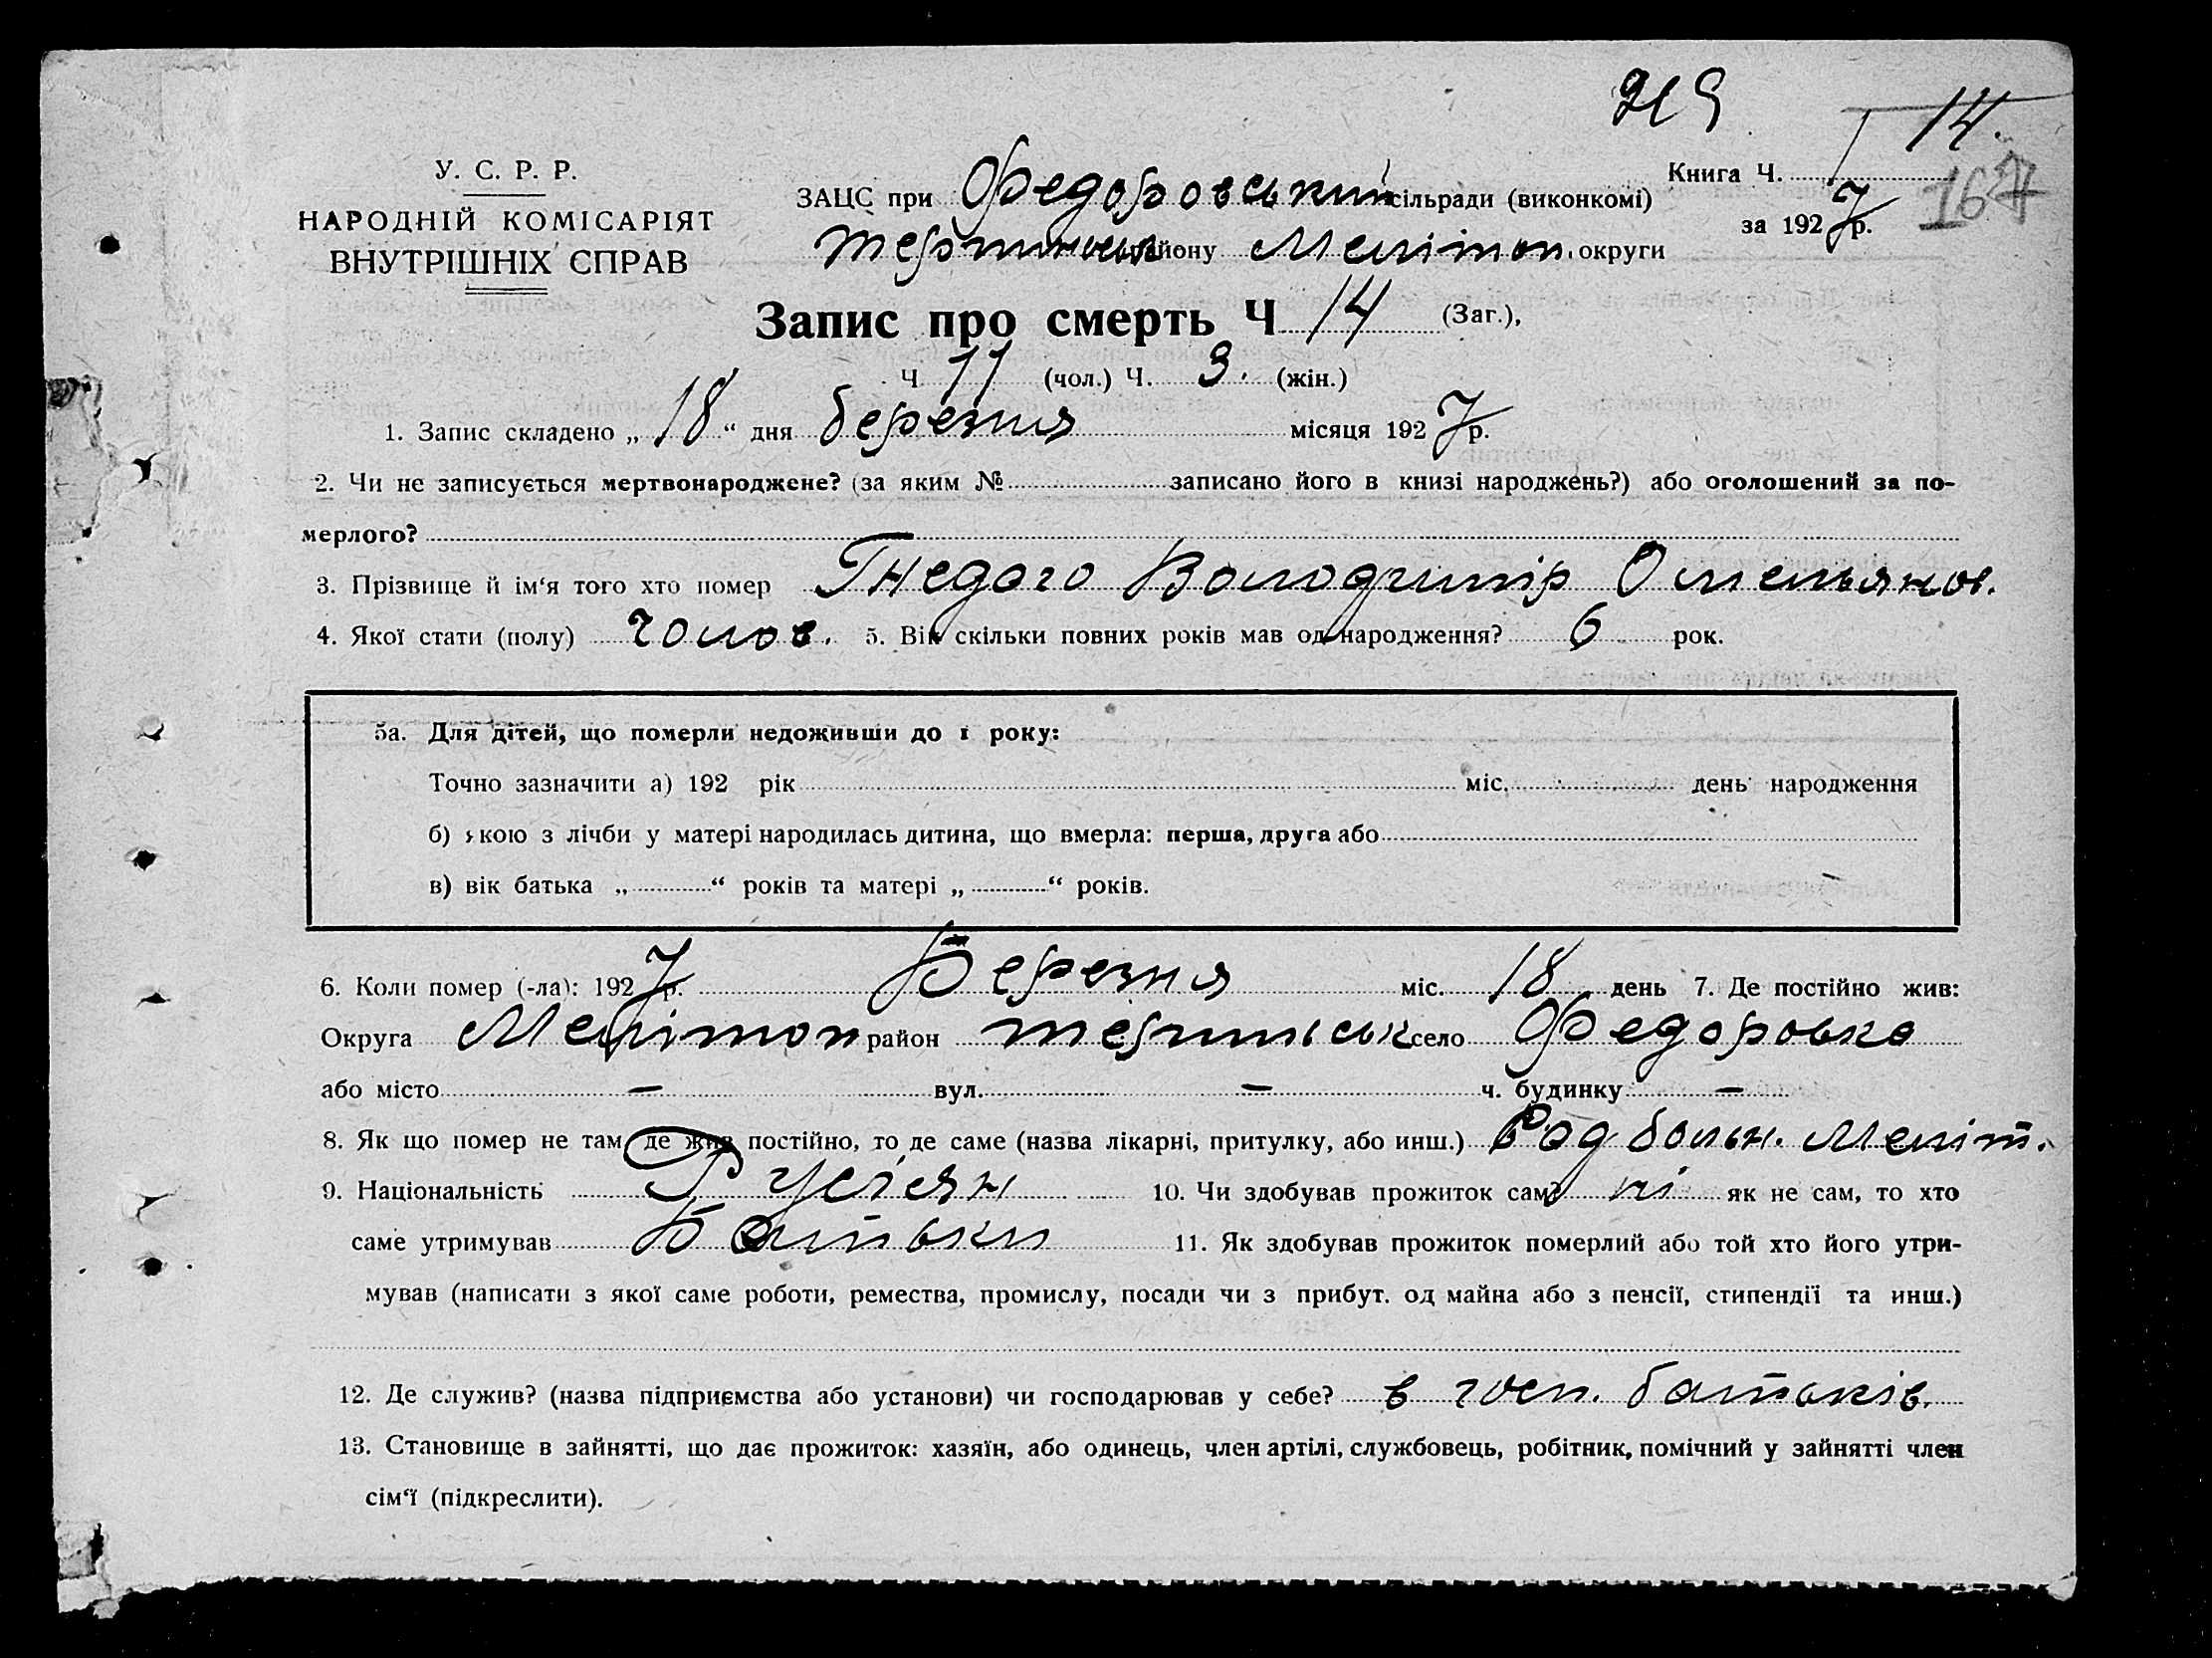 14.
У. С. Р. Р.
НАРОДНІЙ КОМІСАРІЯТ
ВНУТРІШНІХ СПРАВ
Книга Ч. 1
за 1927 р.
167
ЗАЦС при Федоровський сільради (виконкомі)
району Мелітоп. округи
Запис про смерть Ч 14 (Заг.),
Ч 11 (чол.) Ч. 3. (жін.)
1. Запис складено „18“ дня березня місяця 1927 р.
2. Чи не записується мертвонароджене? (за яким № записано його в книзі народжень?) або оголошений за по-
мерлого?
3. Прізвище й ім‘я того хто помер Гнедаго Володимір Омельянов.
4. Якої стати (полу) чолов. 5. Вік скільки повних років мав од народження? 6 рок.
5а. Для дітей, що померли недоживши до 1 року:
Точно зазначити а) 192 рік міс. день народження
б) якою з лічби у матері народилась дитина, що вмерла: перша, друга або
в) вік батька „ “ років та матері „ “ років.
6. Коли помер (-ла): 1927 р. Березня міс. 18 день 7. Де постійно жив:
Округа Мелітоп район село Федоровка
або місто — вул. — ч. будинку —
8. Як що помер не там де жив постійно, то де саме (назва лікарні, притулку, або инш.) больн. Меліт.
9. Національність Русіян 10. Чи здобував прожиток сам? ні як не сам, то хто
саме утримував Батьки 11. Як здобував прожиток померлий або той хто його утри-
мував (написати з якої саме роботи, ремества, промислу, посади чи з прибут. од майна або з пенсії, стипендії та инш.)
12. Де служив? (назва підприємства або установи) чи господарював у себе? в госп. батьків.
13. Становище в зайнятті, що дає прожиток: хазяїн, або одинець, член артілі, службовець, робітник, помічний у зайнятті член
сім‘ї (підкреслити).